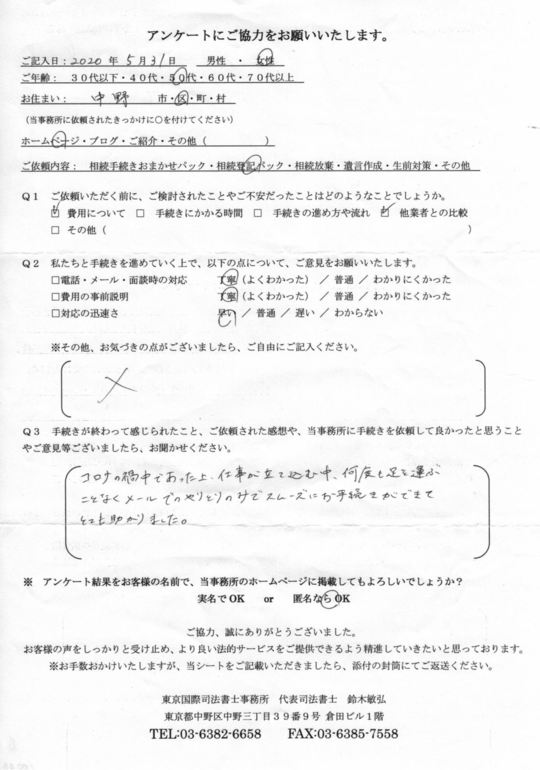 アンケートにご協力をお願いいたします。
ご記入日：2020年5月31日　男性・女性
ご年齢：３０代以下・４０代・５０代・６０代・７０代以上
お住まい：中野　市・区・町・村
（当事務所に依頼されたきっかけに○を付けてください）
ホームページ・ブログ・ご紹介・その他（　　　）
ご依頼内容：相続手続きおまかせパック・相続登記パック・相続放棄・遺言作成・生前対策・その他
Ｑ１　ご依頼いただく前に、ご検討されたことやご不安だったことはどのようなことでしょうか。
☑ 費用について　□ 手続きにかかる時間　□ 手続きの進め方や流れ　☑ 他業者との比較
□ その他（　　　）
Ｑ２　私たちと手続きを進めていく上で、以下の点について、ご意見をお願いいたします。
□電話・メール・面談時の対応　丁寧（よくわかった）／普通／わかりにくかった
□費用の事前説明　丁寧（よくわかった）／普通／わかりにくかった
□対応の迅速さ　早い／普通／遅い／わからない
※その他、お気づきの点がございましたら、ご自由にご記入ください。
Ｑ３　手続きが終わって感じられたこと、ご依頼された感想や、当事務所に手続きを依頼して良かったと思うこと
やご意見等ございましたら、お聞かせください。
コロナの禍中であった上、仕事が立て込む中、何度も足を運ぶ
ことなくメールでのやりとりのみでスムーズにお手続きができて
とても助かりました。
※　アンケート結果をお客様の名前で、当事務所のホームページに掲載してもよろしいでしょうか？
実名でOK　or　匿名ならOK
ご協力、誠にありがとうございました。
お客様の声をしっかりと受け止め、より良い法的サービスをご提供できるよう精進していきたいと思っております。
※お手数おかけいたしますが、当シートをご記載いただきましたら、添付の封筒にてご返送ください。
東京国際司法書士事務所　代表司法書士　鈴木敏弘
東京都中野区中野三丁目３９番９号 倉田ビル１階
TEL:03-6382-6658　FAX:03-6385-7558